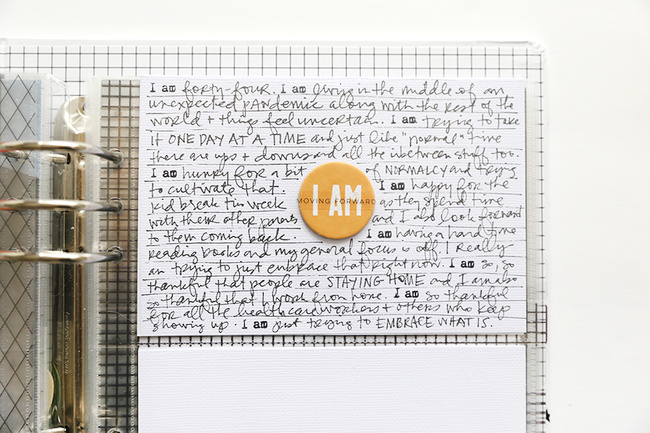 I am forty-four. I am living in the middle of an
unexpected PANDEMIC along with the rest of the
world + things feel uncertain. I am trying to take
it ONE DAY AT A TIME and just like "normal" time
there are ups + downs and all the inbetween stuff too.
I am hungry for a bit of NORMALCY and trying
to cultivate that. I am happy for the
kid break this week as they spend time
with their other parents and I also look forward
to them coming back. I am having a hard time
reading books and my general focus is off. I really
am trying to just embrace that right now. I am so, so
thankful that people are STAYING HOME and I am also
so thankful that I work from home. I am so thankful
for all the healthcare workers + others who keep
showing up. I am just trying to EMBRACE WHAT IS.
I AM
MOVING FORWARD